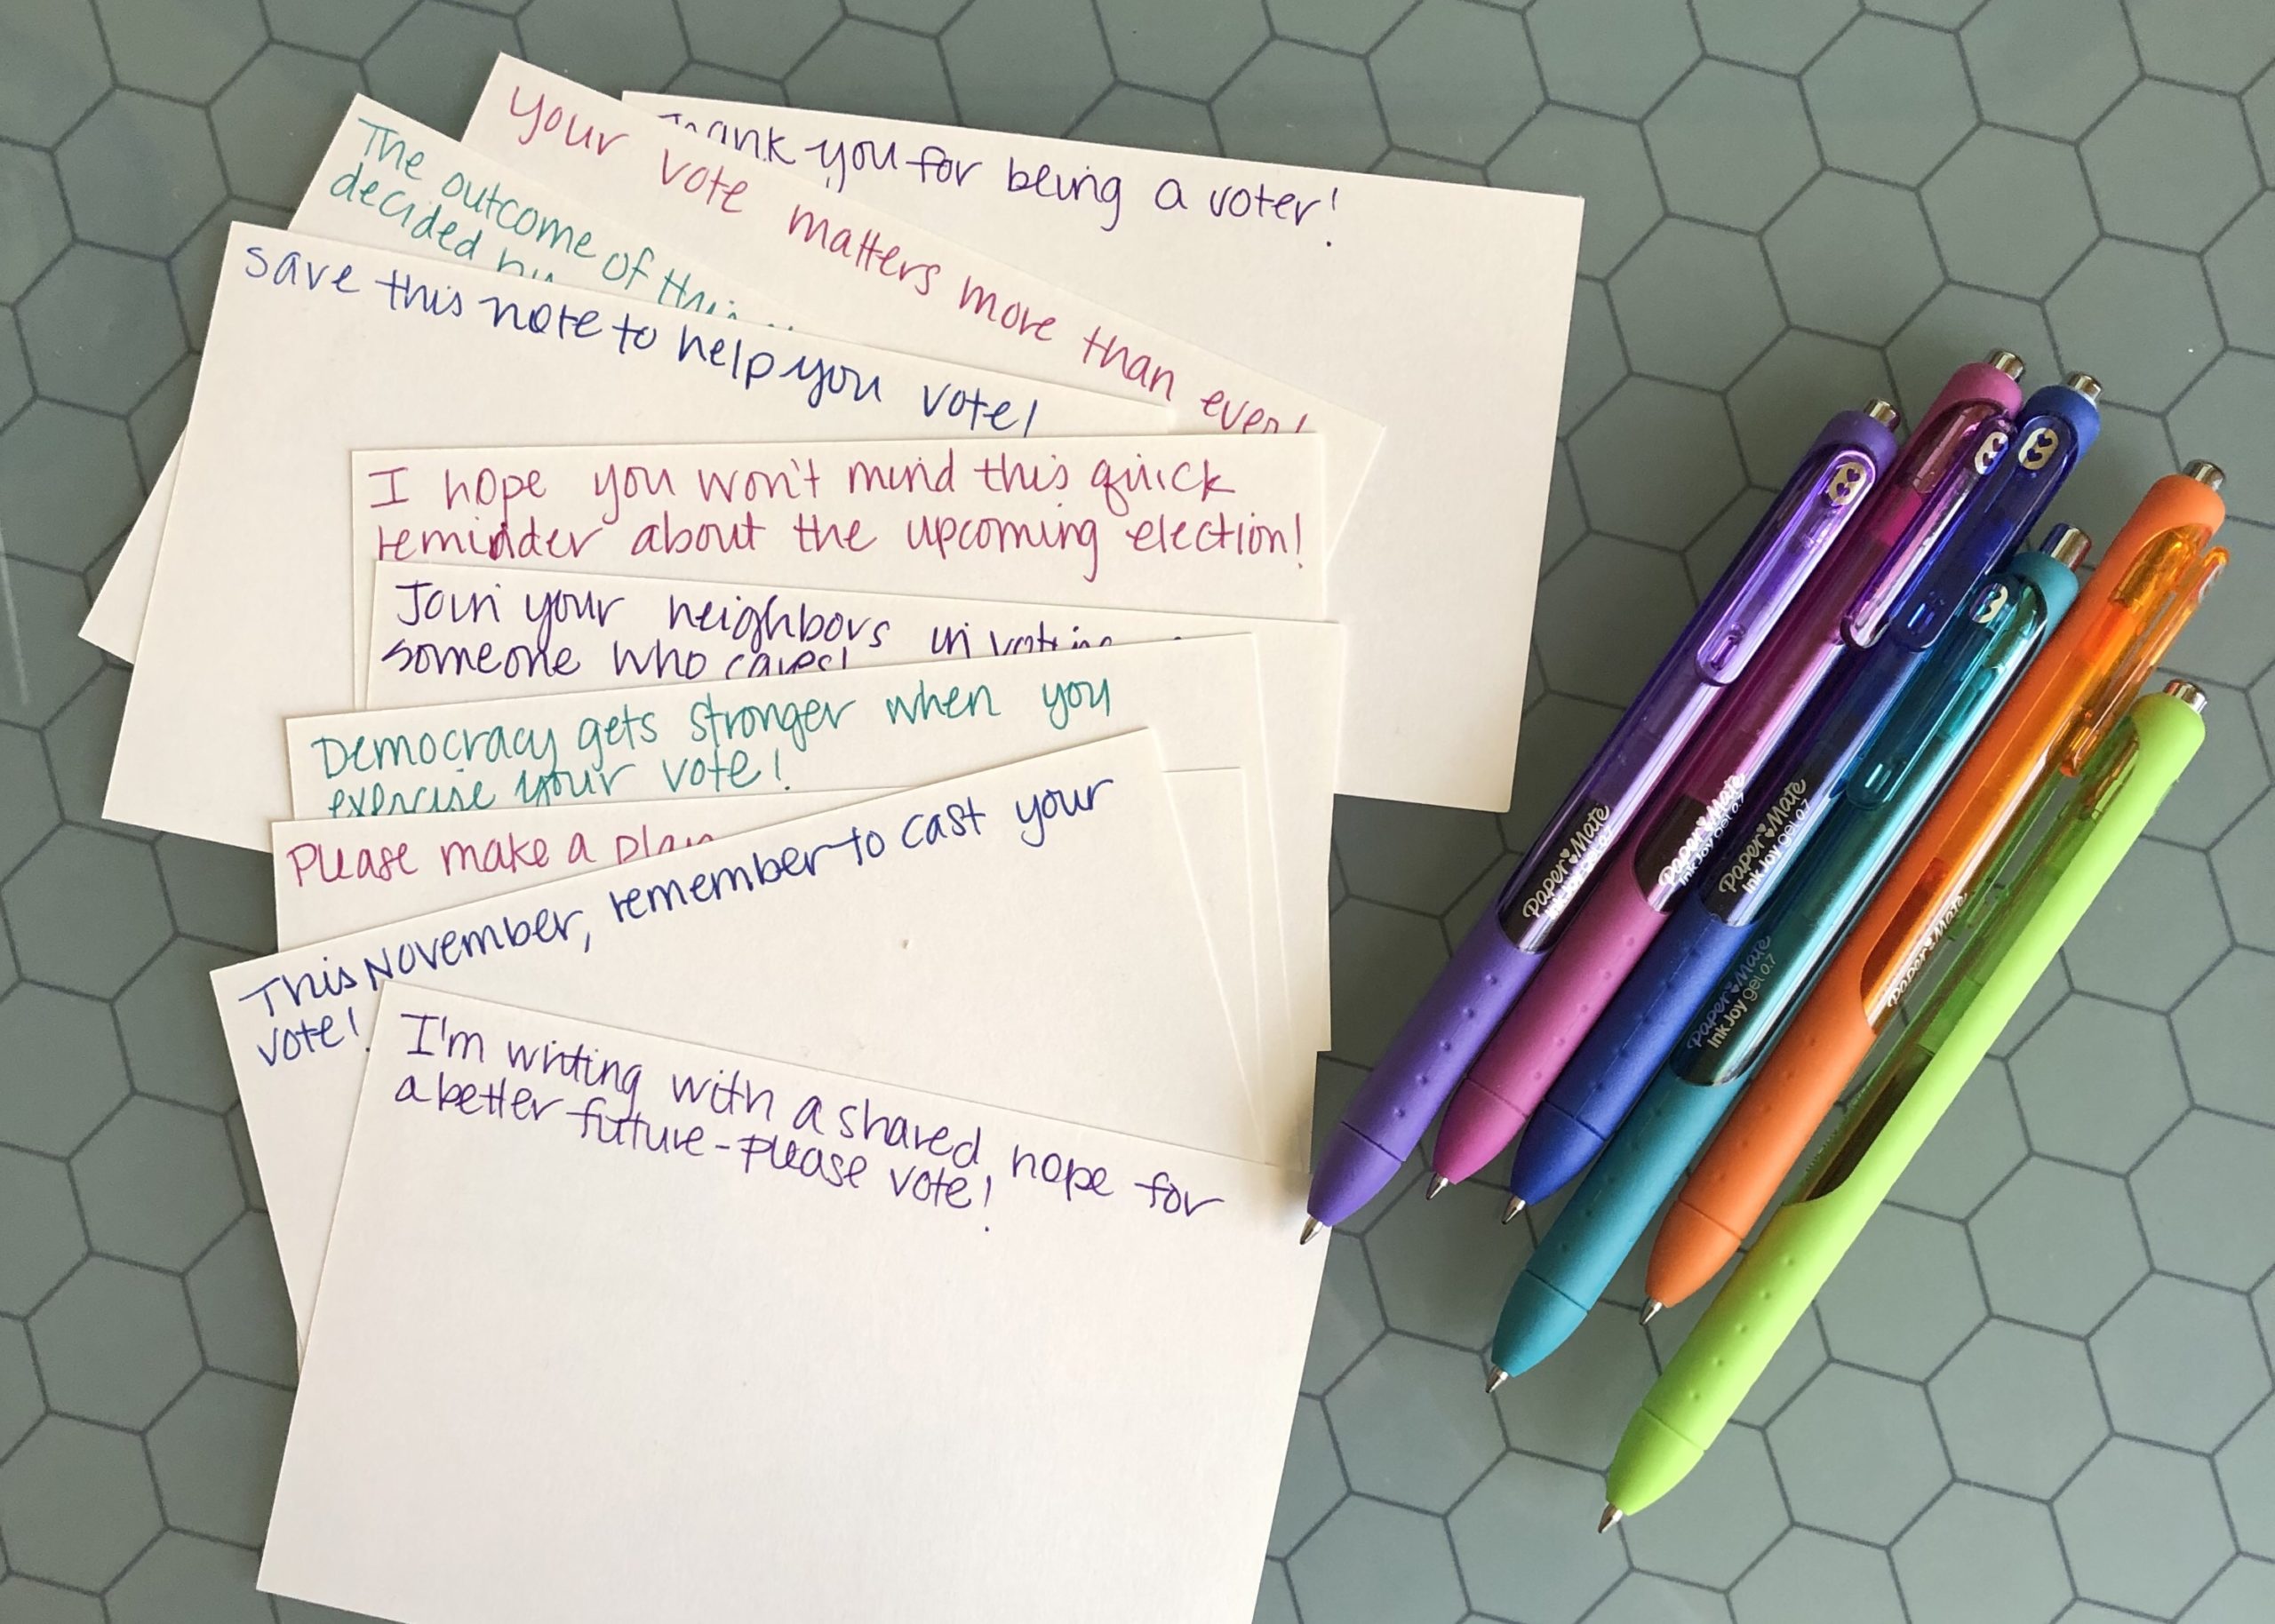 Thank you for being a voter!
your vote matters more than ever!
The outcome of this
decided by
save this note to help you vote!
I hope you won't mind this quick
reminder about the upcoming election!
Join your neighbors in voting
someone who cares!
Democracy gets stronger when you
exercise your vote!
Please make a plan
This November, remember to cast your
vote!
I'm writing with a shared hope for
a better future - please vote!
Paper Mate
InkJoy
Paper Mate
InkJoy gel 0.7
Paper Mate
InkJoy gel 0.7
Paper Mate
InkJoy gel 0.7
Paper Mate